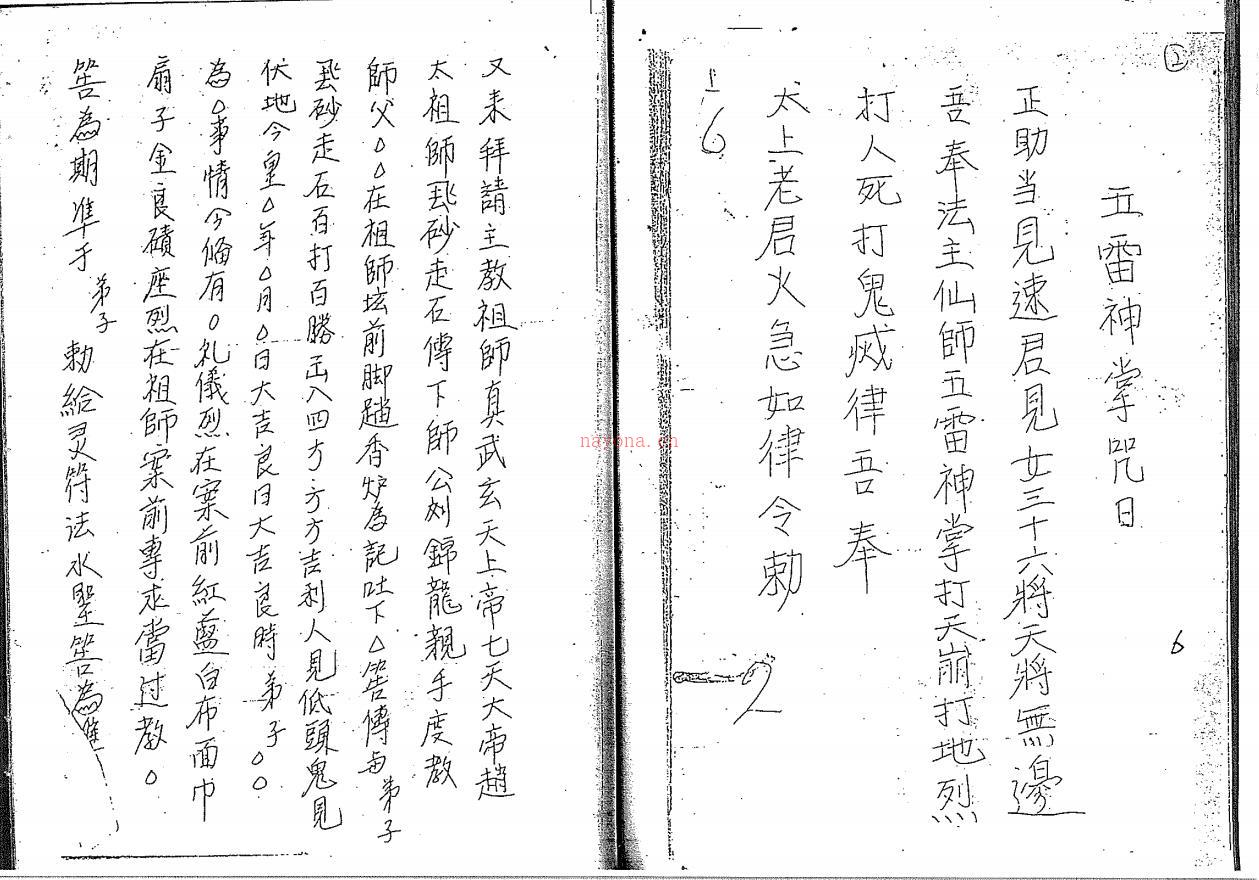 ②
五雷神掌咒日
正助当見速君見女三十六將天將無邊
吾奉法主仙師五雷神掌打天崩打地烈
打人死打鬼威律吾奉
太上老君火急如律令勅
6
6
2
又来拜請主教祖師真武玄天上帝七天大帝趙
太祖師飛砂走石傳下師公刘錦龍親手度教
師父△△在祖師坛前脚踏香炉為記吐下△筶傳与弟子
飛砂走石百打百勝出入四方方方吉利人見低頭鬼見
伏地今皇△年△月△日大吉良日大吉良時弟子△△
為△事情今俻有△礼儀烈在案前紅藍白布面巾
扇子金良磧座烈在祖師案前專求當过教△
筶為期準于弟子勅給灵符法水聖筶為準
nayona.cn